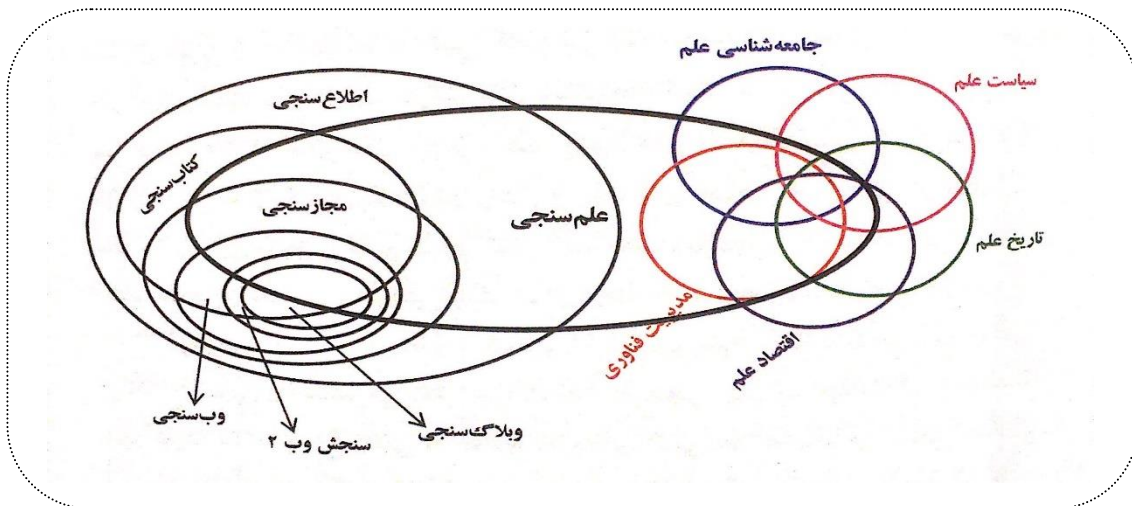 جامعه‌شناسی علم
سیاست علم
اطلاع‌سنجی
کتاب‌سنجی
مجازسنجی
علم‌سنجی
تاریخ علم
مدیریت فناوری
اقتصاد علم
وب‌سنجی
سنجش وب ۲
وبلاگ‌سنجی